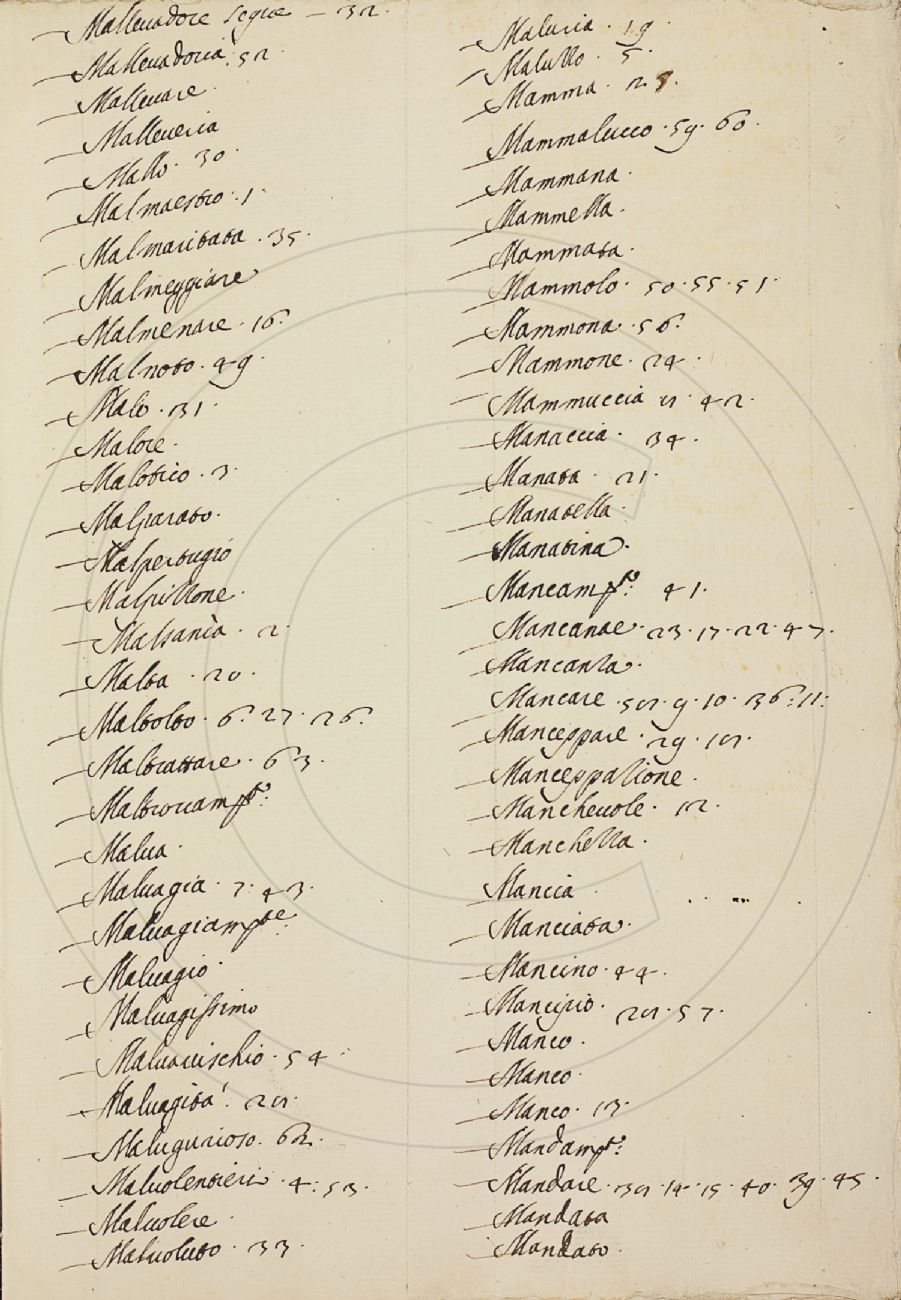 Malleuadore segue – 32.
Malleuadoria. 52.
Malleuare.
Malleueria
Mallo. 30.
Malmaestro. 1.
Malmaritata. 35.
Malmeggiare
Malmenare. 16.
Malnoto. 49.
Malo. 31.
Malore.
Malotico. 3.
Malparato.
Malpertugio
Malpittone.
Malsanìa. 2.
Malta. 20.
Maltolto. 6. 27. 26.
Maltrattare. 63.
Maltrouamto.
Malua.
Maluagia. 7. 43.
Maluagiamte.
Maluagio.
Maluagissimo
Maluauischio. 54.
Maluagità.
Malugurioso. 62.
Maluolentieri. 4. 53.
Maluolere.
Maluoluto. 33.
Maluria. 19.
Malullo. 5.
Mamma. 25.
Mammalucco. 59. 60.
Mammana.
Mammella.
Mammata.
Mammolo. 50. 55. 51.
Mammona. 56.
Mammone. 24.
Mammuccia 42.
Manaccia. 34.
Manata. 21.
Manatella.
Manatina.
Mancamto. 41.
Mancanae. 23. 17. 22. 47.
Mancanza.
Mancare. 9. 10. 36. 11.
Manceppare. 29.
Manceppazione.
Mancheuole. 12.
Manchezza.
Mancia
Manciata.
Mancino. 44.
Mancipio. 57.
Manco.
Manco.
Manco. 13.
Mandamto.
Mandare. 14. 15. 40. 39. 45.
Mandata
Mandato.